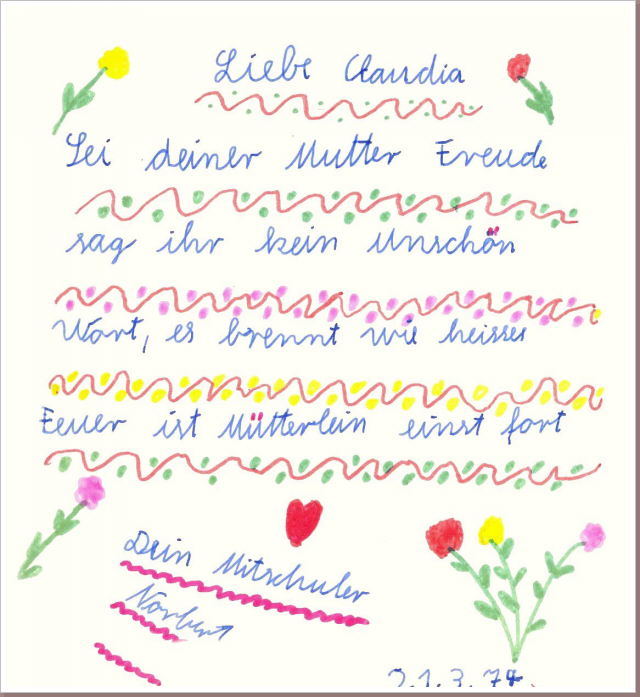 Liebe Claudia
Sei deiner Mutter Freude
sag ihr kein unschön
Wort, es brennt wie heisses
Feuer ist Mütterlein einst fort
Dein Mitschuler
Norbert